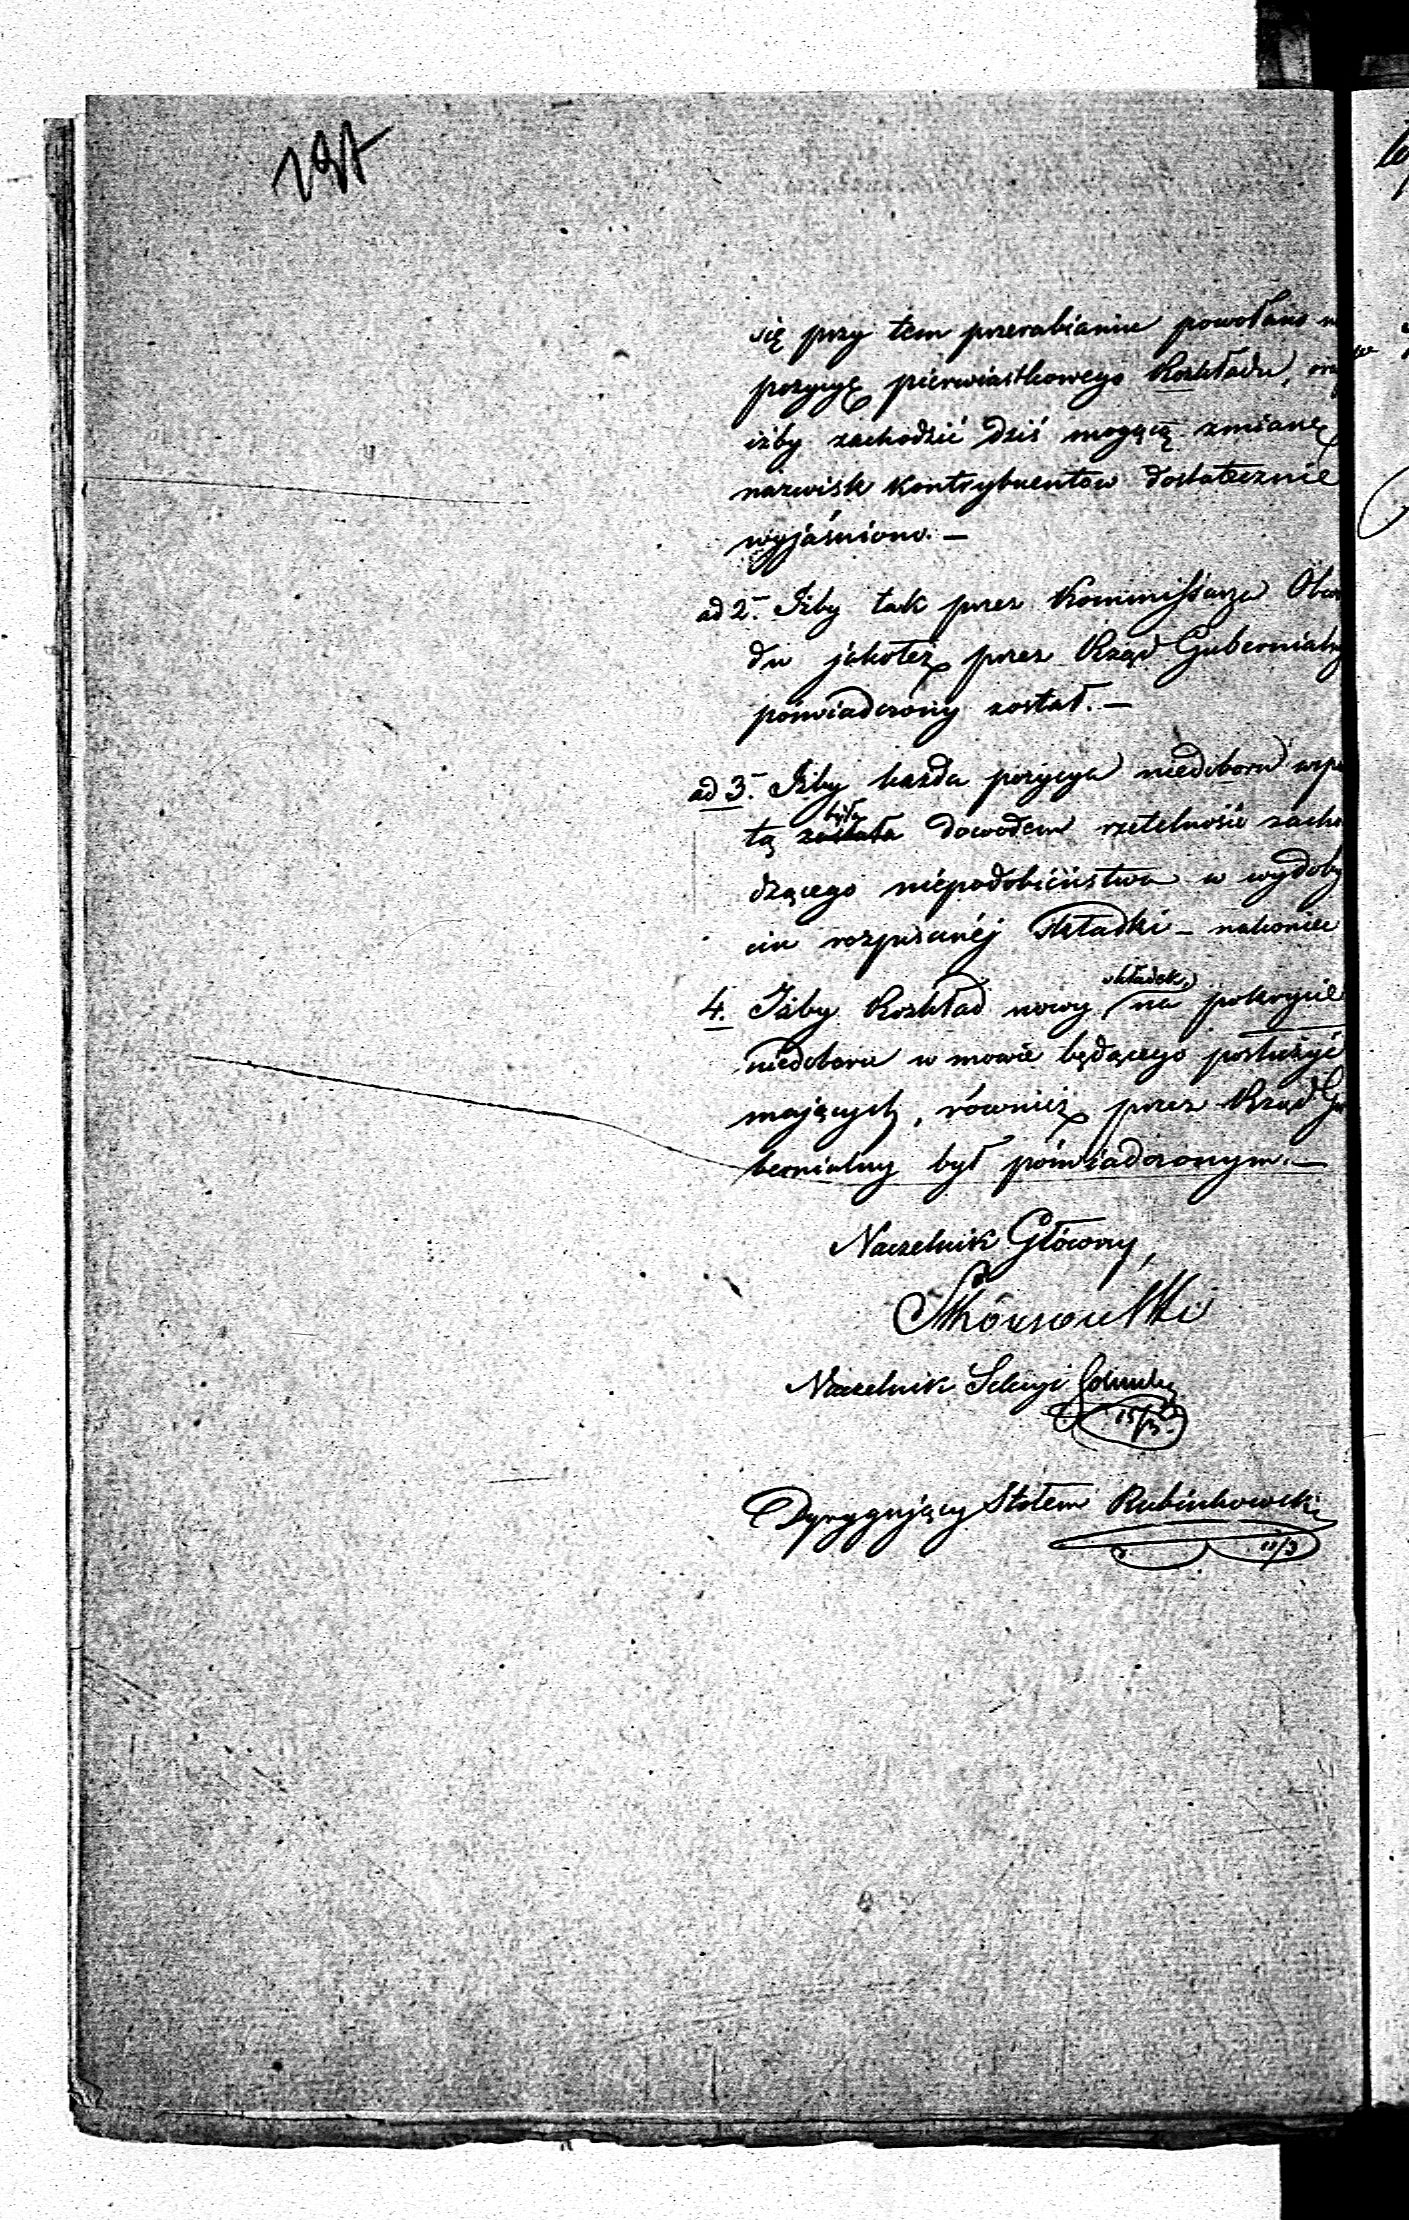 się przy tem przerabianiu powołano n
pozycyę pierwiastkowego Rozkładu, ora
iżby zachodzić dziś mogącą zmianę
nazwisk kontrybuentów dostatecznie
wyjaśniono. —
ad 2. Iżby tak przez Kommissarza Obwo
du jakoteż przez Rząd Gubernialny
poświadczony został. —
ad 3. Iżby każda pozycya niedoboru wspa
tą była zostala dowodem rzetelności zacho
dzącego niepodobieństwa w wydoby
ciu rozpisanéj składki – nakoniec
4. Iżby Rozkład nowy składek, na pokrycie
niedoboru w mowie będącego posłużyć
mających, również przez Rząd Gu
bernialny był poświadczonym. —
Naczelnik Główny,
Naczelnik Sekcyi
15/3
Dyrygujący Stołem Rubinkowski
11/3